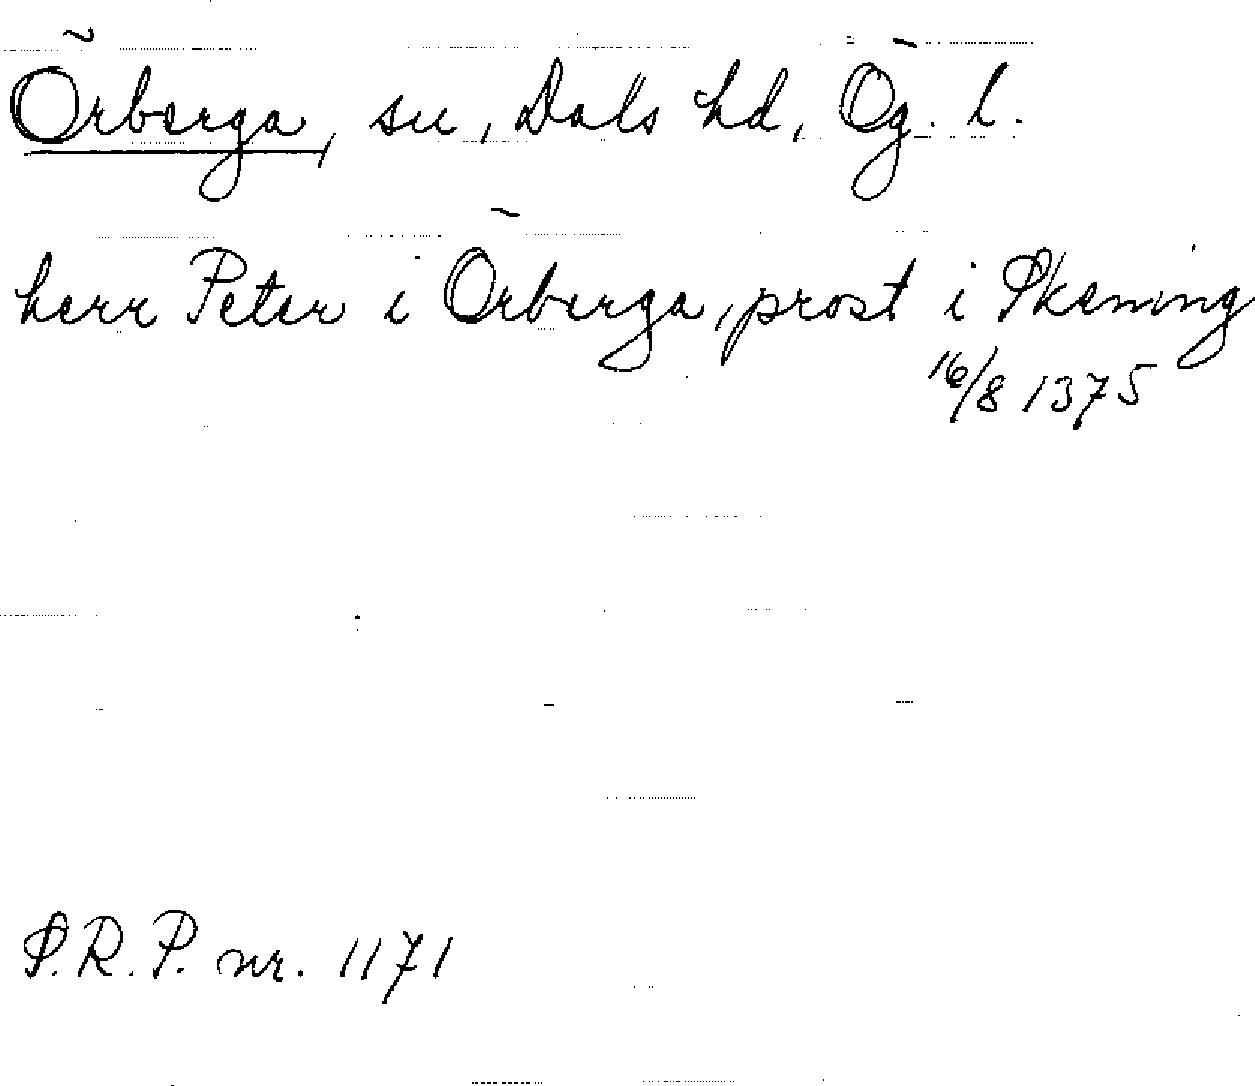 Örberga, su, Dals hd, Ög. l.
herr Peter i Örberga, prost i Skening
16/8 1375
S.R.P. nr. 1171